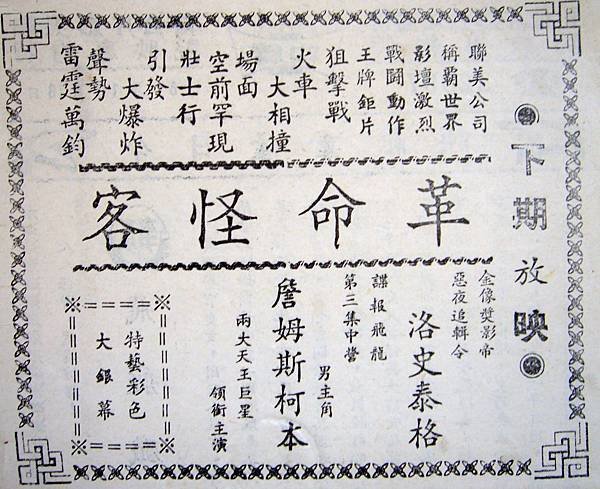 下期放映
聯美公司
稱霸世界
影壇激烈
戰鬪動作
王牌鉅片
狙擊戰
火車
大相撞
場面
空前罕現
壯士行
引發
大爆炸
聲勢
雷霆萬鈞
革命怪客
金像獎影帝
惡夜追輯令
洛史泰格
諜報飛龍
第三集中營
男主角
詹姆斯柯本
兩大天王巨星
領銜主演
特藝彩色
大銀幕